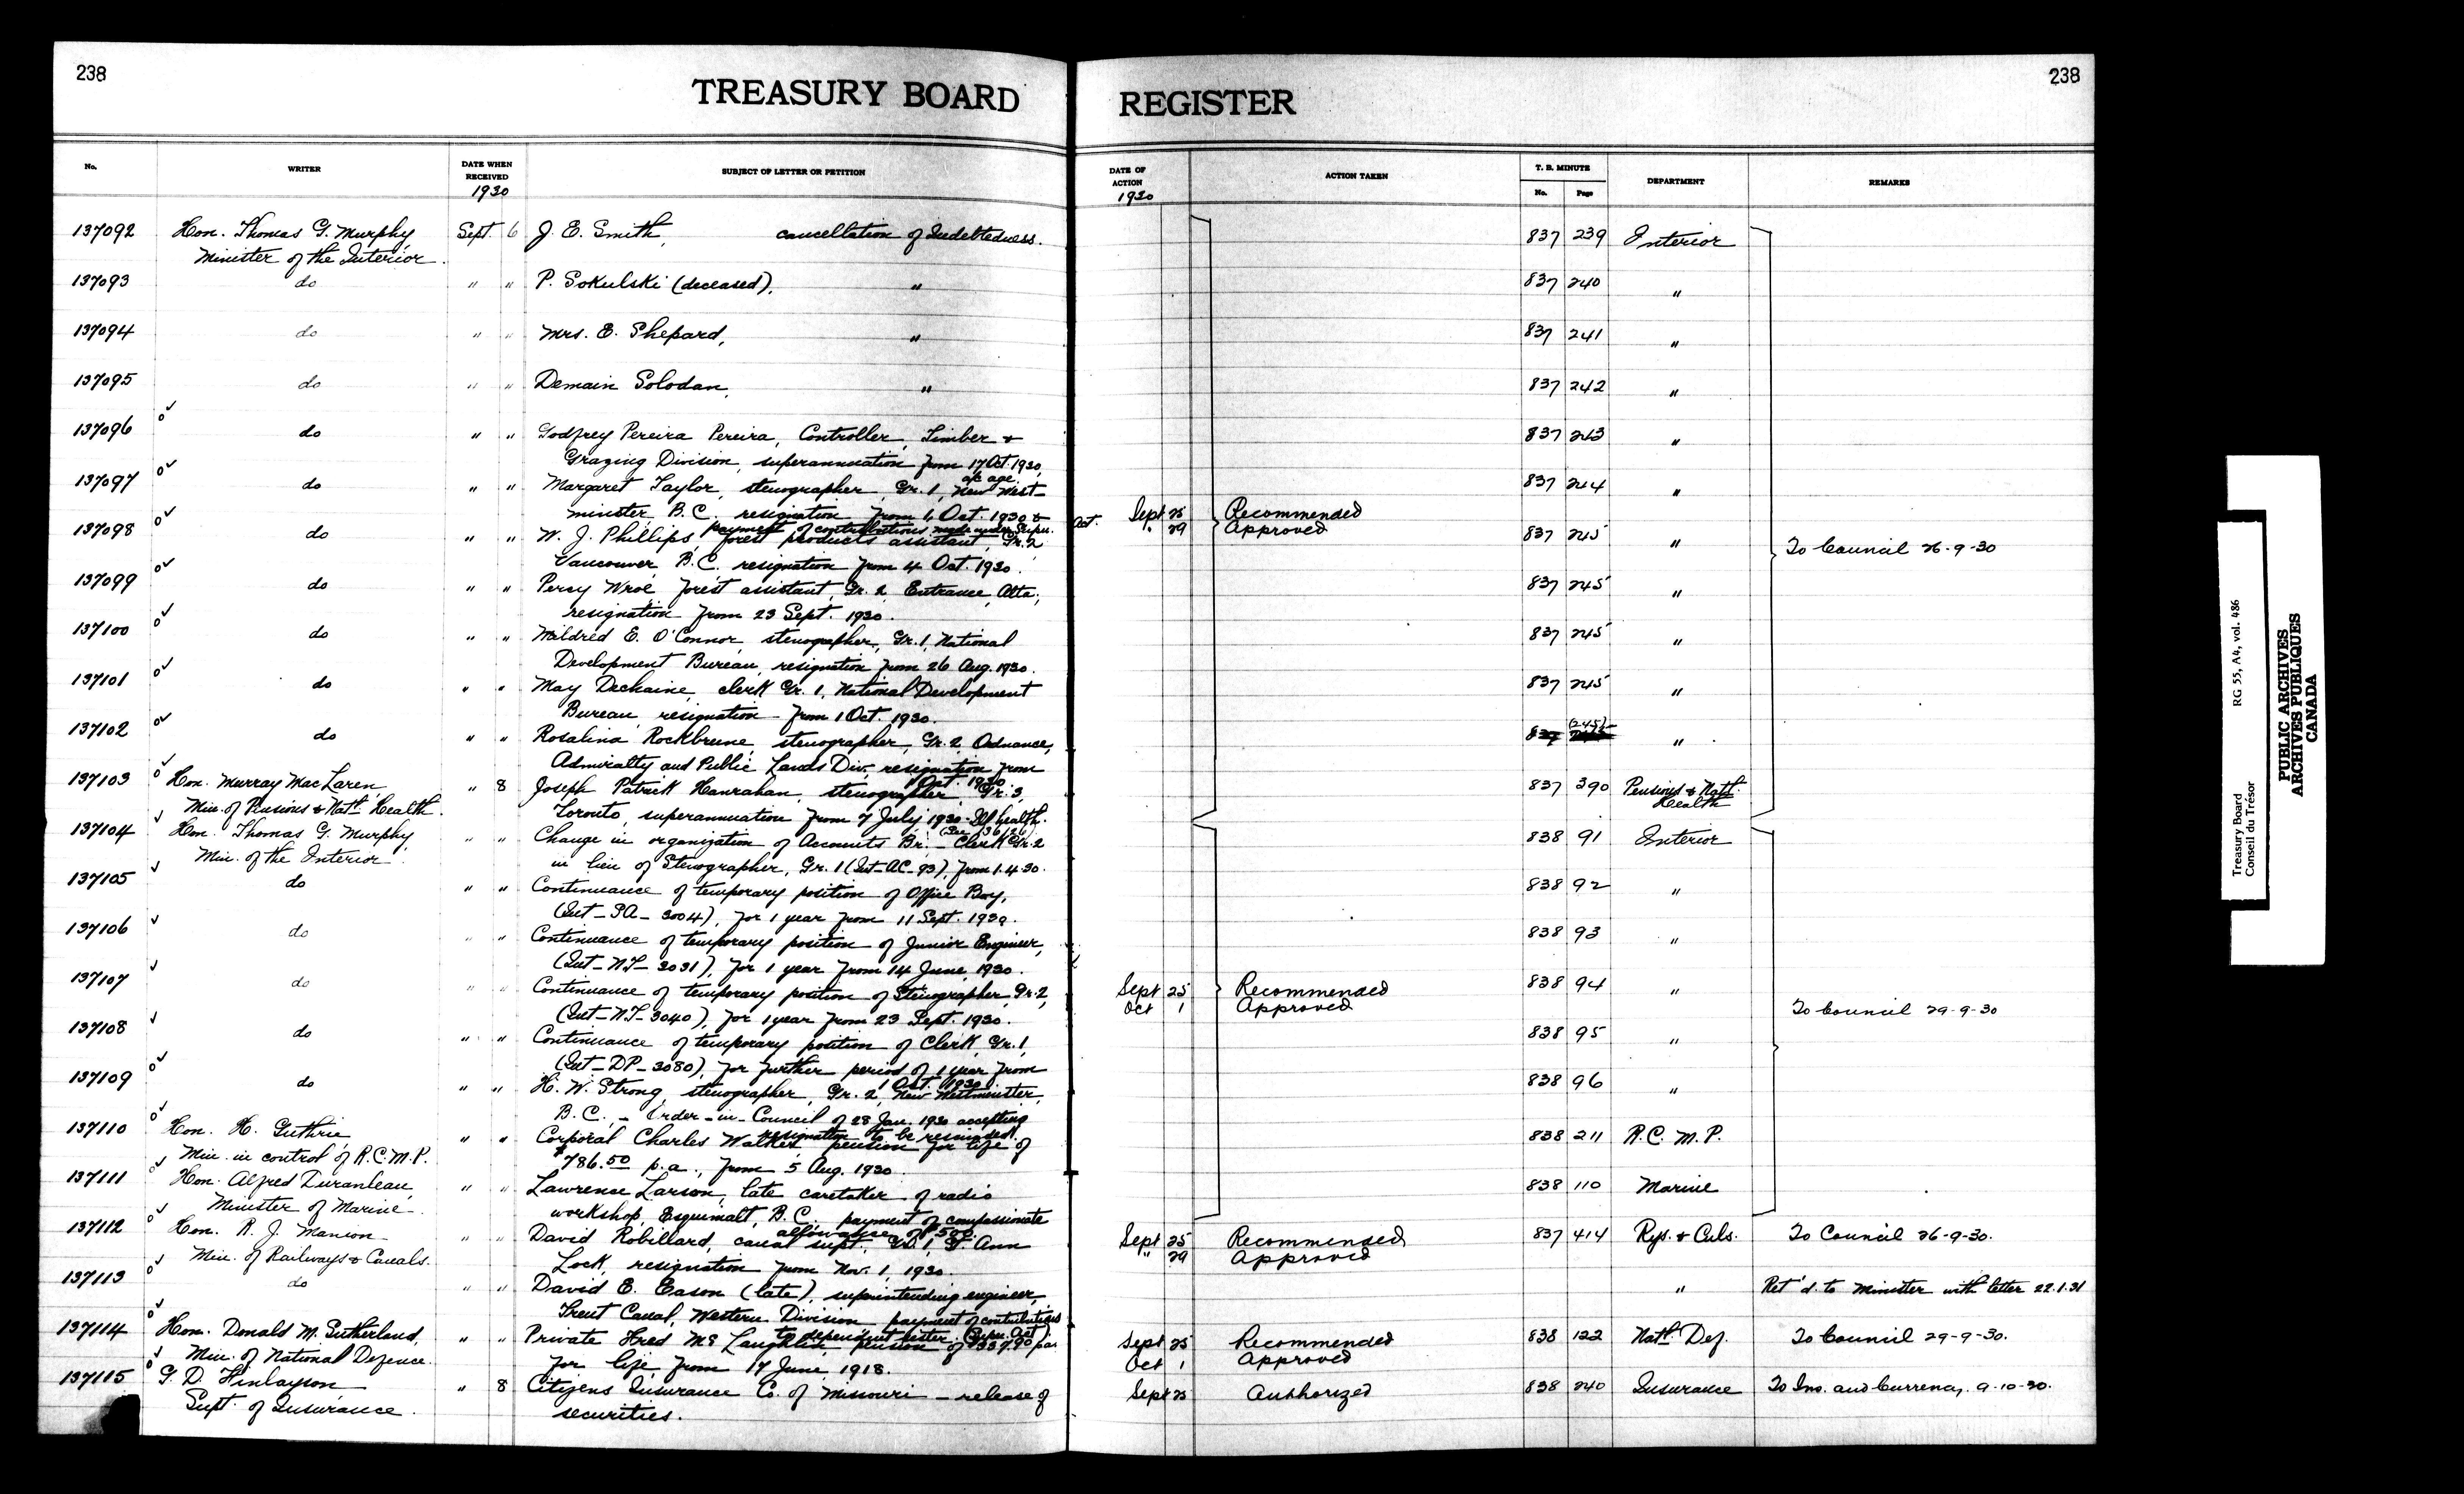 238
TREASURY BOARD REGISTER
238
No.
WRITER
DATE WHEN RECEIVED
1930
SUBJECT OF LETTER OR PETITION
DATE OF ACTION
1930
ACTION TAKEN
T. B. MINUTE
No. Page
DEPARTMENT
REMARKS
137092 Hon. Thomas G. Murphy Sept. 6 J. E. Smith, cancellation of Indebtedness. 837 239 Interior
Minister of the Interior.
137093 do " " P. Sokulski (deceased), " 837 240 "
137094 do " " Mrs. E. Shepard, " 837 241 "
137095 do " " Demain Solodan, " 837 242 "
137096 do " " Godfrey Pereira Pereira, Controller, Timber & 837 243 "
Grazing Division, superannuation from 17 Oct. 1930,
a/c age.
137097 do " " Margaret Taylor, stenographer, Gr. 1, New West- 837 244 "
minster, B.C. resignation from 1 Oct. 1930 &
payment of contributions made under Super. Act.
Sept 25 Recommended
" 29 Approved
137098 do " " W. J. Phillips, forest products assistant, Gr. 2 837 245 "
Vancouver B.C. resignation from 4 Oct. 1930.
To Council 26-9-30
137099 do " " Percy Wroe forest assistant, Gr. 2, Entrance, Alta., 837 245 "
resignation from 23 Sept. 1930.
137100 do " " Mildred E. O'Connor, stenographer, Gr. 1, National 837 245 "
Development Bureau, resignation from 26 Aug. 1930.
137101 do " " May Dechaine, clerk Gr. 1, National Development 837 245 "
Bureau, resignation from 1 Oct. 1930.
137102 do " " Rosalina Rockbrune, stenographer, Gr. 2, Ordnance, 837 (245) "
Admiralty and Public Lands Div. resignation from
1 Oct. 1930.
137103 Hon. Murray MacLaren, " 8 Joseph Patrick Hanrahan, stenographer, Gr. 3, 837 390 Pensions & Natl. Health
Min. of Pensions & Natl. Health. Toronto, superannuation from 7 July 1930 - Ill health.
137104 Hon. Thomas G. Murphy " " Change in organization of Accounts Br. - Clerk Gr. 2 838 91 Interior
Min. of the Interior. in lieu of Stenographer, Gr. 1 (Int-AC-93), from 1.4.30.
137105 do " " Continuance of temporary position of Office Boy, 838 92 "
(Int-SA-3004), for 1 year from 11 Sept. 1930.
137106 do " " Continuance of temporary position of Junior Engineer, 838 93 "
(Int-NT-3031), for 1 year from 14 June, 1930.
137107 do " " Continuance of temporary position of Stenographer, Gr. 2, 838 94 "
(Int-NT-3040), for 1 year from 23 Sept. 1930.
Sept 25 Recommended
Oct 1 Approved
To Council 29-9-30
137108 do " " Continuance of temporary position of Clerk, Gr. 1, 838 95 "
(Int-DP-3080), for further period of 1 year from
1 Oct. 1930.
137109 do " " H. W. Strong, stenographer, Gr. 2, New Westminster, 838 96 "
B.C. - Order-in-Council of 28 Jan. 1930 accepting
resignation to be rescinded.
137110 Hon. H. Guthrie, " " Corporal Charles Walker pension for life of 838 211 R.C.M.P.
Min. in control of R.C.M.P. $786.50 p.a., from 5 Aug. 1930.
137111 Hon. Alfred Duranleau, " " Lawrence Larson, late caretaker of radio 838 110 Marine
Minister of Marine. workshop, Esquimalt, B.C., payment of compassionate
137112 Hon. R. J. Manion " " David Robillard, canal supt. Gr. 1, St Ann Sept 25 Recommended 837 414 Rys. & Cnls. To Council 26-9-30.
Min. of Railways & Canals. Lock, resignation from Nov. 1, 1930. " 29 Approved
137113 do " " David E. Eason (late), superintending engineer, " Ret'd. to Minister with letter 22.1.31
Trent Canal, Western Division, payment of contributions
to dependent sister (Super. Act).
137114 Hon. Donald M. Sutherland, " " Private Fred McLaughlin pension of $337.90 p.a. Sept 25 Recommended 838 122 Natl. Def. To Council 29-9-30.
Min. of National Defence. for life, from 17 June, 1918. Oct 1 Approved
137115 G. D. Finlayson " 8 Citizens Insurance Co. of Missouri - release of Sept 25 Authorized 838 240 Insurance To Ins. and Currency, 9-10-30.
Supt. of Insurance. securities.
Treasury Board
Conseil du Trésor
RG 55, A4, vol. 486
PUBLIC ARCHIVES
ARCHIVES PUBLIQUES
CANADA